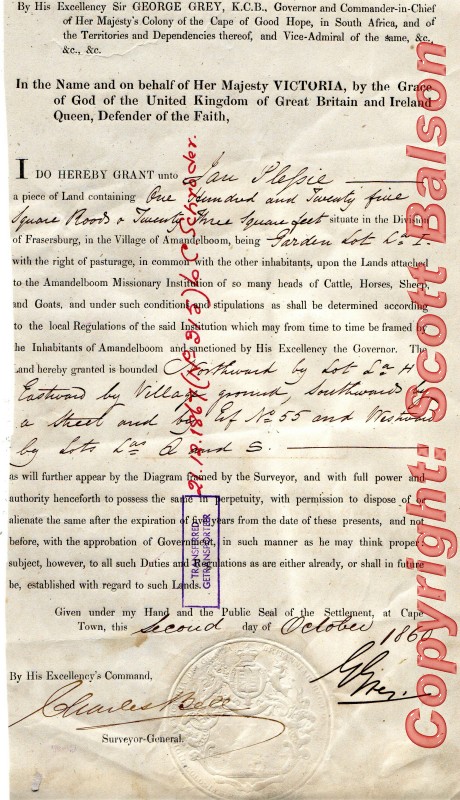 By His Excellency Sir GEORGE GREY, K.C.B., Governor and Commander-in-Chief
of Her Majesty's Colony of the Cape of Good Hope, in South Africa, and of
the Territories and Dependencies thereof, and Vice-Admiral of the same, &c.,
&c., &c.
In the Name and on behalf of Her Majesty VICTORIA, by the Grace
of God of the United Kingdom of Great Britain and Ireland
Queen, Defender of the Faith,
I DO HEREBY GRANT unto Jan Plessie
a piece of Land containing One Hundred and Twenty five
Square Roods & Twenty Three Square feet situate in the Division
of Frasersburg, in the Village of Amandelboom, being Garden Lot La I.
with the right of pasturage, in common with the other inhabitants, upon the Lands attached
to the Amandelboom Missionary Institution of so many heads of Cattle, Horses, Sheep,
and Goats, and under such conditions and stipulations as shall be determined according
to the local Regulations of the said Institution which may from time to time be framed by
the Inhabitants of Amandelboom and sanctioned by His Excellency the Governor. The
Land hereby granted is bounded Northward by Lot La H
Eastward by Village ground, Southward by
a Street and by Erf No 55 and Westward
by Lots Las Q and S.
as will further appear by the Diagram framed by the Surveyor, and with full power and
authority henceforth to possess the same in perpetuity, with permission to dispose of or
alienate the same after the expiration of five years from the date of these presents, and not
before, with the approbation of Government, in such manner as he may think proper;
subject, however, to all such Duties and Regulations as are either already, or shall in future
be, established with regard to such Lands.
Given under my Hand and the Public Seal of the Settlement, at Cape
Town, this Second day of October 1860
By His Excellency's Command,
G Grey.
Charles Bell
Surveyor-General.
2.12.1867 (No 212) to C Schröder.
TRANSFERRED
GETRANSPORTEER
Copyright: Scott Balson